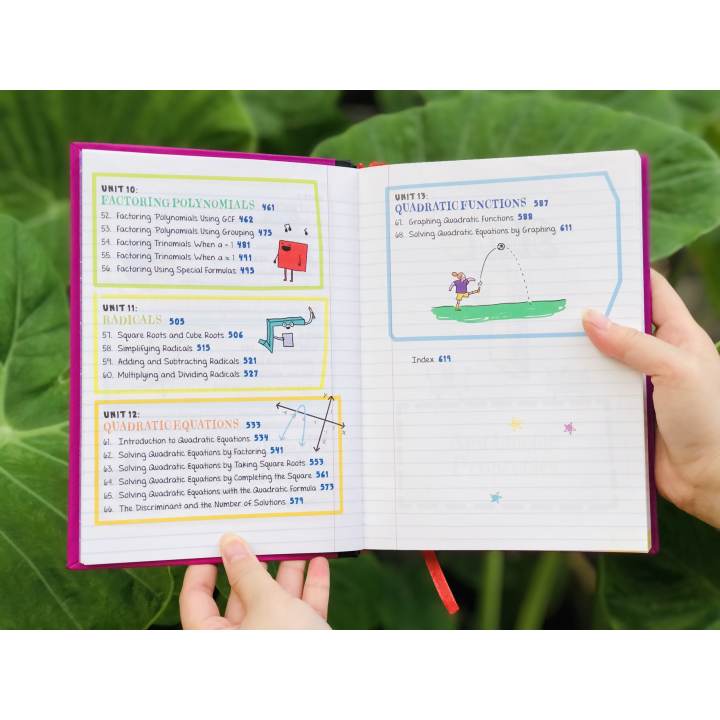 UNIT 10:
FACTORING POLYNOMIALS 461
52. Factoring Polynomials Using GCF 462
53. Factoring Polynomials Using Grouping 475
54. Factoring Trinomials When a = 1 481
55. Factoring Trinomials When a ≠ 1 491
56. Factoring Using Special Formulas 495
UNIT 11:
RADICALS 505
57. Square Roots and Cube Roots 506
58. Simplifying Radicals 515
59. Adding and Subtracting Radicals 521
60. Multiplying and Dividing Radicals 527
UNIT 12:
QUADRATIC EQUATIONS 533
61. Introduction to Quadratic Equations 534
62. Solving Quadratic Equations by Factoring 541
63. Solving Quadratic Equations by Taking Square Roots 553
64. Solving Quadratic Equations by Completing the Square 561
65. Solving Quadratic Equations with the Quadratic Formula 573
66. The Discriminant and the Number of Solutions 579
UNIT 13:
QUADRATIC FUNCTIONS 587
67. Graphing Quadratic Functions 588
68. Solving Quadratic Equations by Graphing 611
Index 619